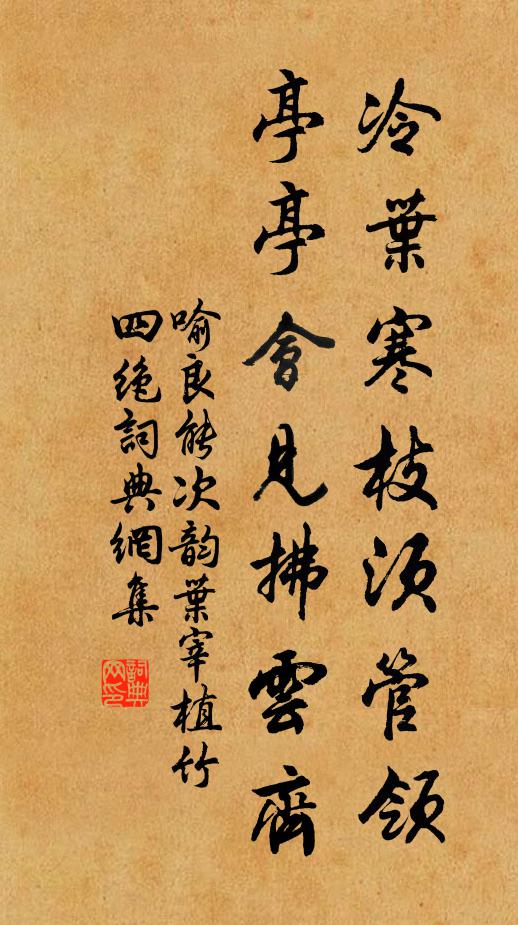 冷葉寒枝須管領
亭亭會見拂雲齊
喻良能次韵葉宰植竹
四絶詞典網集
詞典
网印